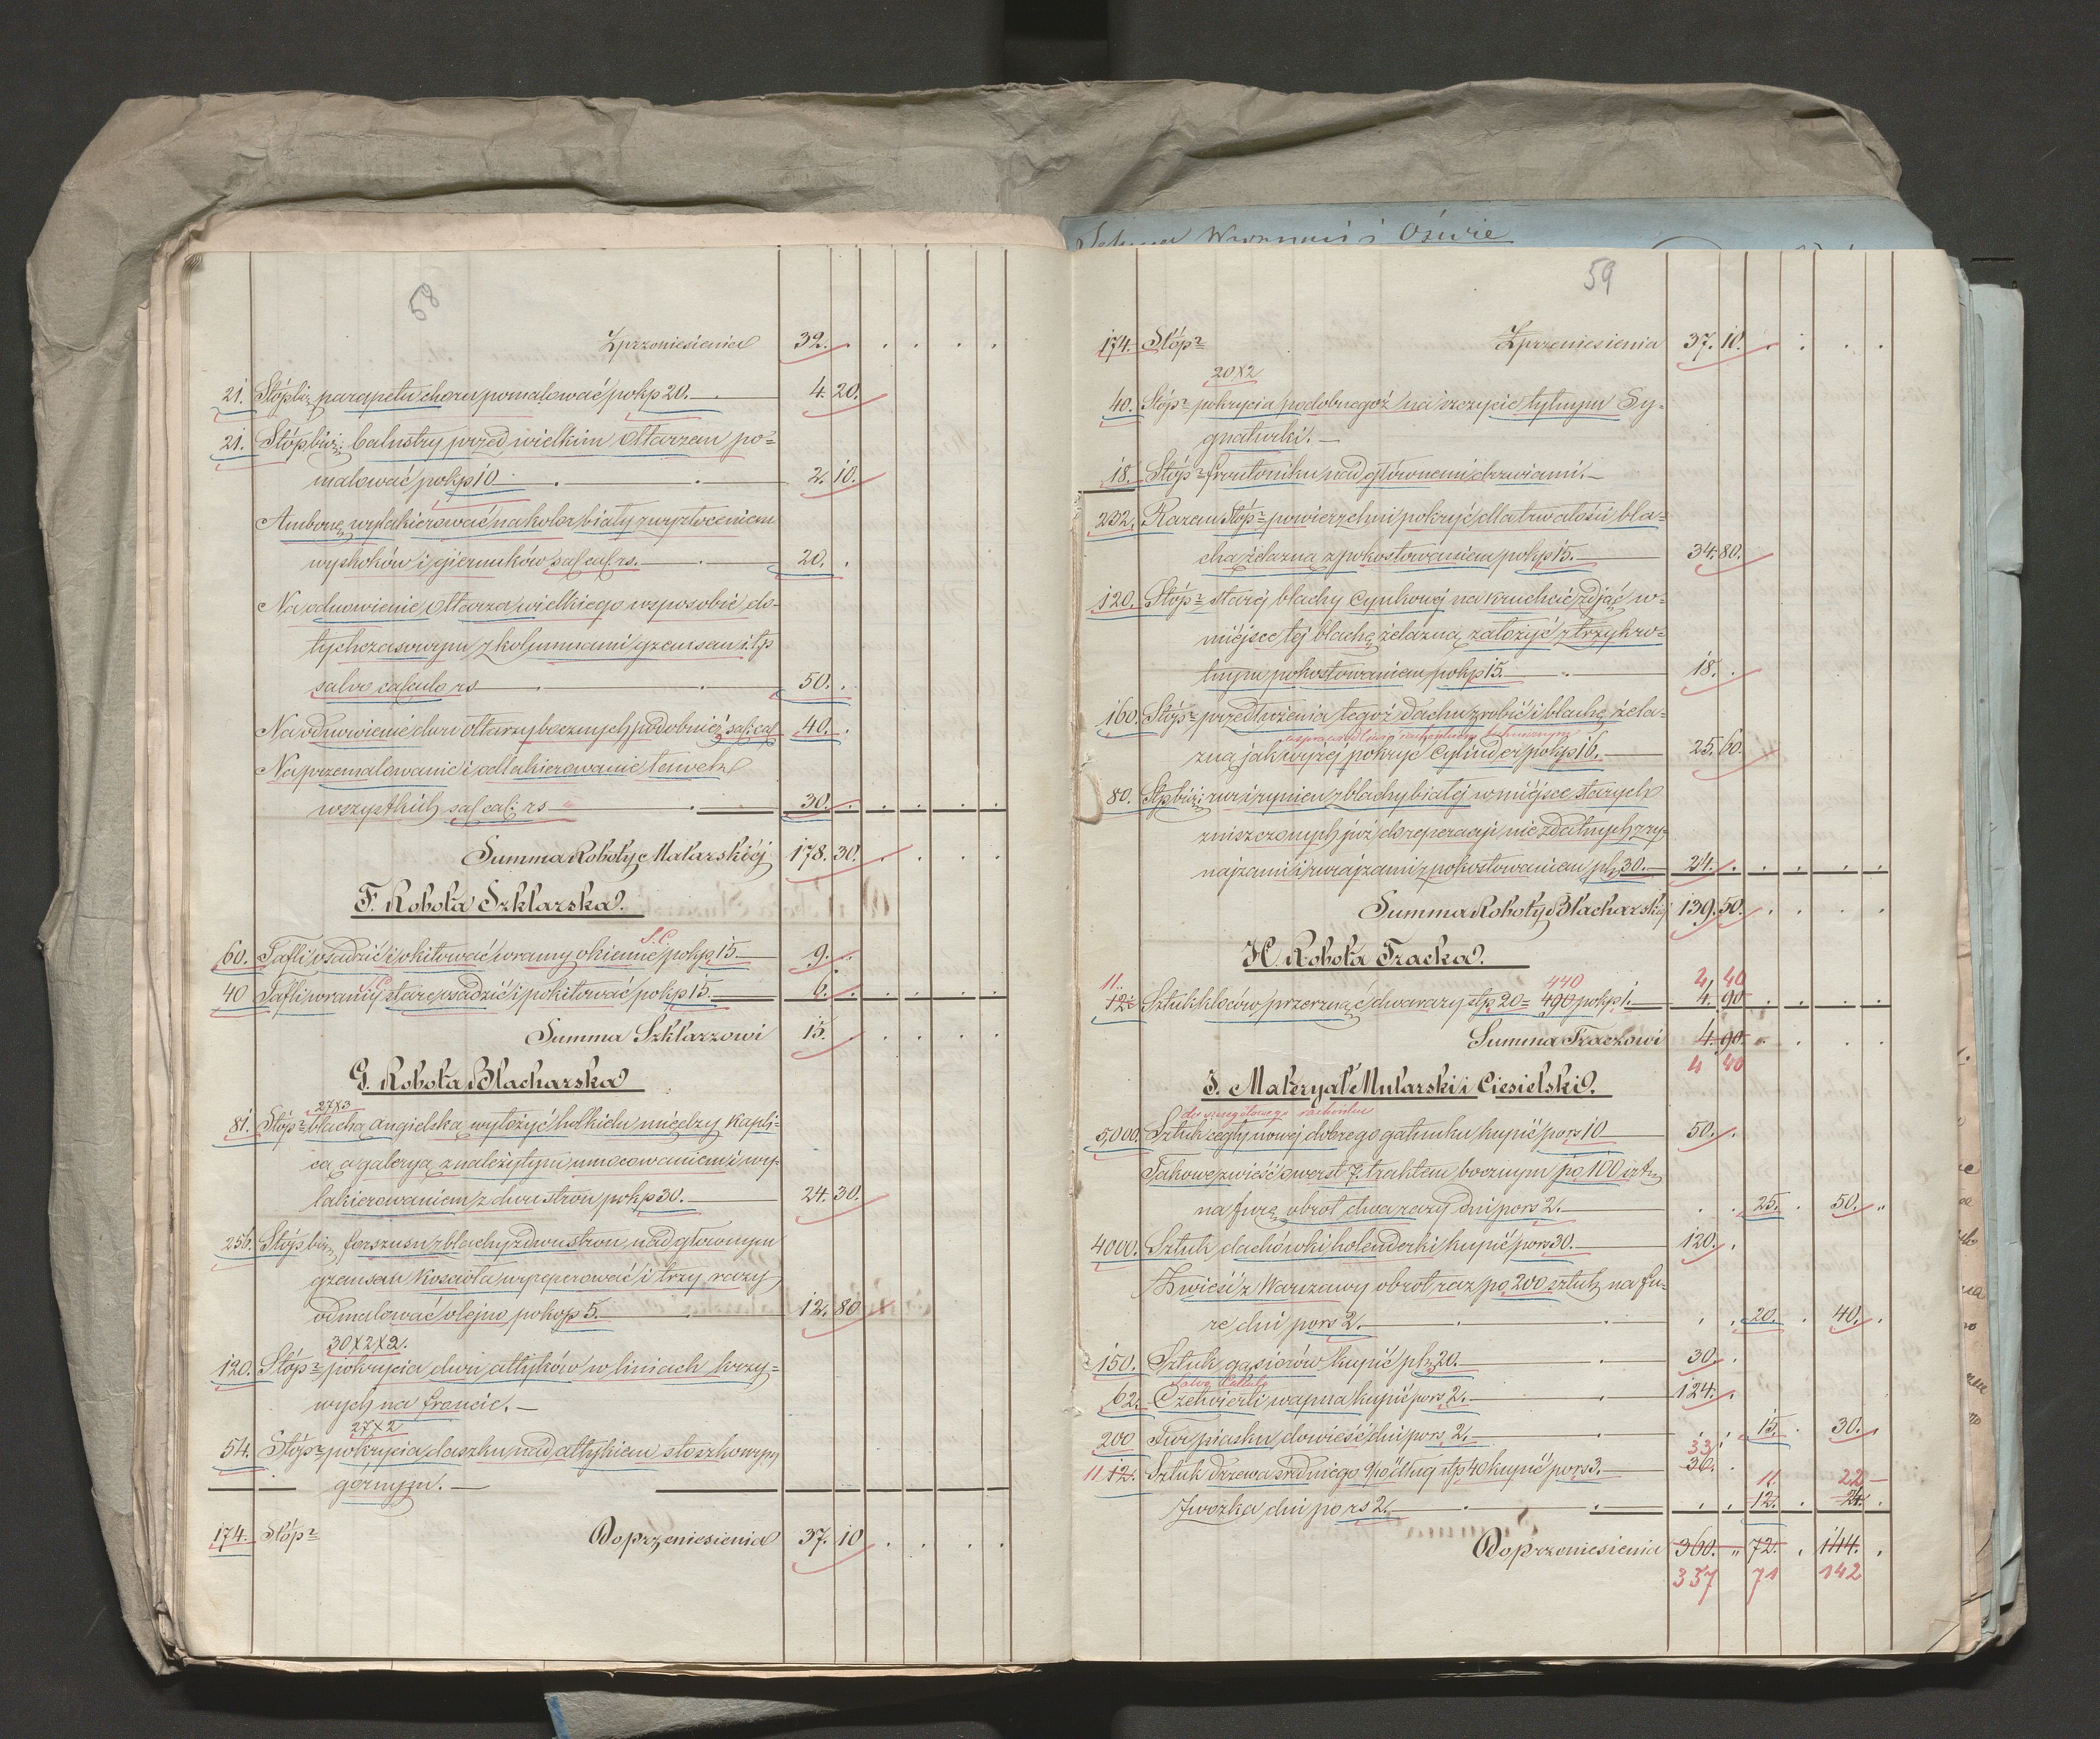 58
Zprzeniesienia 32. . . . . .
21. Stóp bież: parapetu choru pomalować po kp 20. — 4. 20.
21. Stóp bież: balustry przed wielkim Ołtarzem po=
malować po kp 10 — 2. 10.
Ambonę wylakierować na kolor biały z wyzłoceniem
wyskoków i giemsików sal cal rs. — 20. .
Na odnowienie Ołtarza wielkiego w sposobie do-
tychczasowym z kolumnami gzemsem i tp
salvo calculo rs — 50. .
Na odnowienie dwu ołtarzy bocznych podobnież sal: cal 40. .
Na przemalowanie i odlakierowanie ławek
wszystkich sal cal: rs — 30. . . . . .
Summa Roboty Malarskiéj 178. 30. . . . .
F. Robota Szklarska.
S. C.
60. Tafli osadzić i okitować w ramy okienne po kp 15 — 9. .
S. C.
40 Tafli w ramy stare osadzić i pokitować po kp 15. — 6. . . . . .
Summa Szklarzowi 15. . . . . .
G. Robota Blacharska
27X3
81. Stóp □ blachą angielską wyłożyć holkielu między Kapli-
cą a galeryą z należytym umocowaniem i wy-
lakierowaniem z dwu stron po kp 30. — 24. 30.
256. Stóp bież: forszusu z blachy z dwu stron nad głównym
gzemsem Kościoła wypeperować i trzy razy
odmalować olejno po kop 5. — 12. 80
30X2X2.
120. Stóp □ pokrycia dwu attyków w liniach krzy=
wych na froncie. —
27X2
54. Stóp □ pokrycia daszku nad attykiem stoszkowym
górnym. —
174. Stóp □ Do przeniesienia 37. 10 . . . .
59
174. Stóp □ Zprzeniesienia 37. 10. . . . .
20X2
40. Stóp □ pokrycia podobnegoż na szczycie tylnym Sy-
gnaturki. —
18. Stóp □ frontoniku nad głównemi drzwiami. —
232. Razem Stóp □ powierzchni pokryć dla trwałości bla=
chą żelazną z pokostowaniem po kp 15. — 34. 80.
120. Stóp □ starej blachy Cynkowej na Kruchcie zdjąć w=
miejsce tej blachą żelazną założyć z trzykro=
tnym pokostowaniem po kp 15. — 18. .
160. Stóp □ przedłużenia tegoż dachu zrobić i blachą żela=
usprawiedliwić rachunkiem technicznym
zną jak wyżej pokryć Cylinder po kp 16. — 25. 60.
80. Stóp bież: rur i rynien z blachy białej w miejsce starych
zniszczonych już do reperacyi niezdatnych z ry-
najzami i rurajzami z pokostowaniem po kp 30. — 24. . . . . .
Summa Roboty Blacharskiej 139. 50. . . . .
H. Robota Tracka.
11. 440 4, 40
12. Sztuk kloców przerznąć dwa razy stp 20= 490 po kp 1. — 4. 90. . . . .
Summa Traczowi 4. 90. . . . .
4 40
I. Materyał Mularski i Ciesielski.
do szczegółowego rachunku
5,000. Sztuk cegły nowej dobrego gatunku kupić po rs 10 — 50. .
Takowe zwieść o werst 7. traktem bocznym po 100 sztuk
na furę obrot dwa razy dni po rs 2. — . . 25. . 50. „
4000. Sztuk dachówki holenderki kupić po rs 30. — 120. .
Zwieść z Warszawy obrot raz po 200 sztuk na fu-
rę dni po rs 2. — . . 20. . 40. .
150. Sztuk gąsiorów kupić po kp 20. — 30. .
Salvo Calculo
62. Czetwierti wapna kupić po rs 2. — 124. .
200 Fur piasku dowieść dni po rs 2. — . . 15. . 30. .
33
11 12. Sztuk Drzewa średniego 9/10 dług stp 40 kupić po rs 3. — 36. .
11. 22 —
Zwózka dni po rs 2. — . . 12. . 24. .
Do przeniesienia 360. „ 72. . 144. .
357 71 142